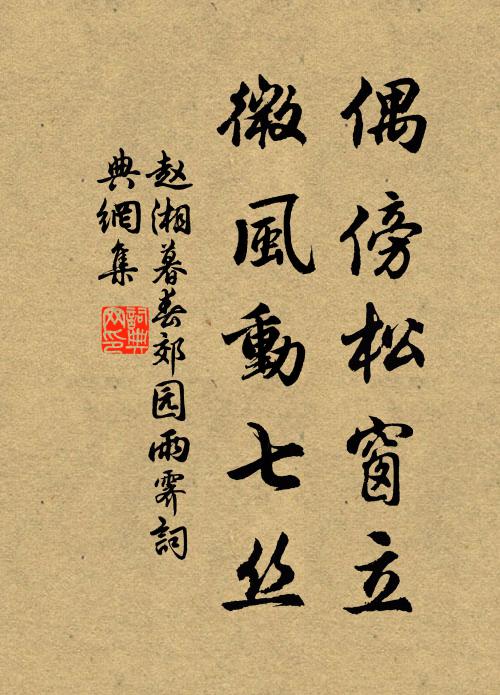 偶傍松窗立
微風動七丝
赵湘暮春郊园雨霁詞
典網集
詞典網印